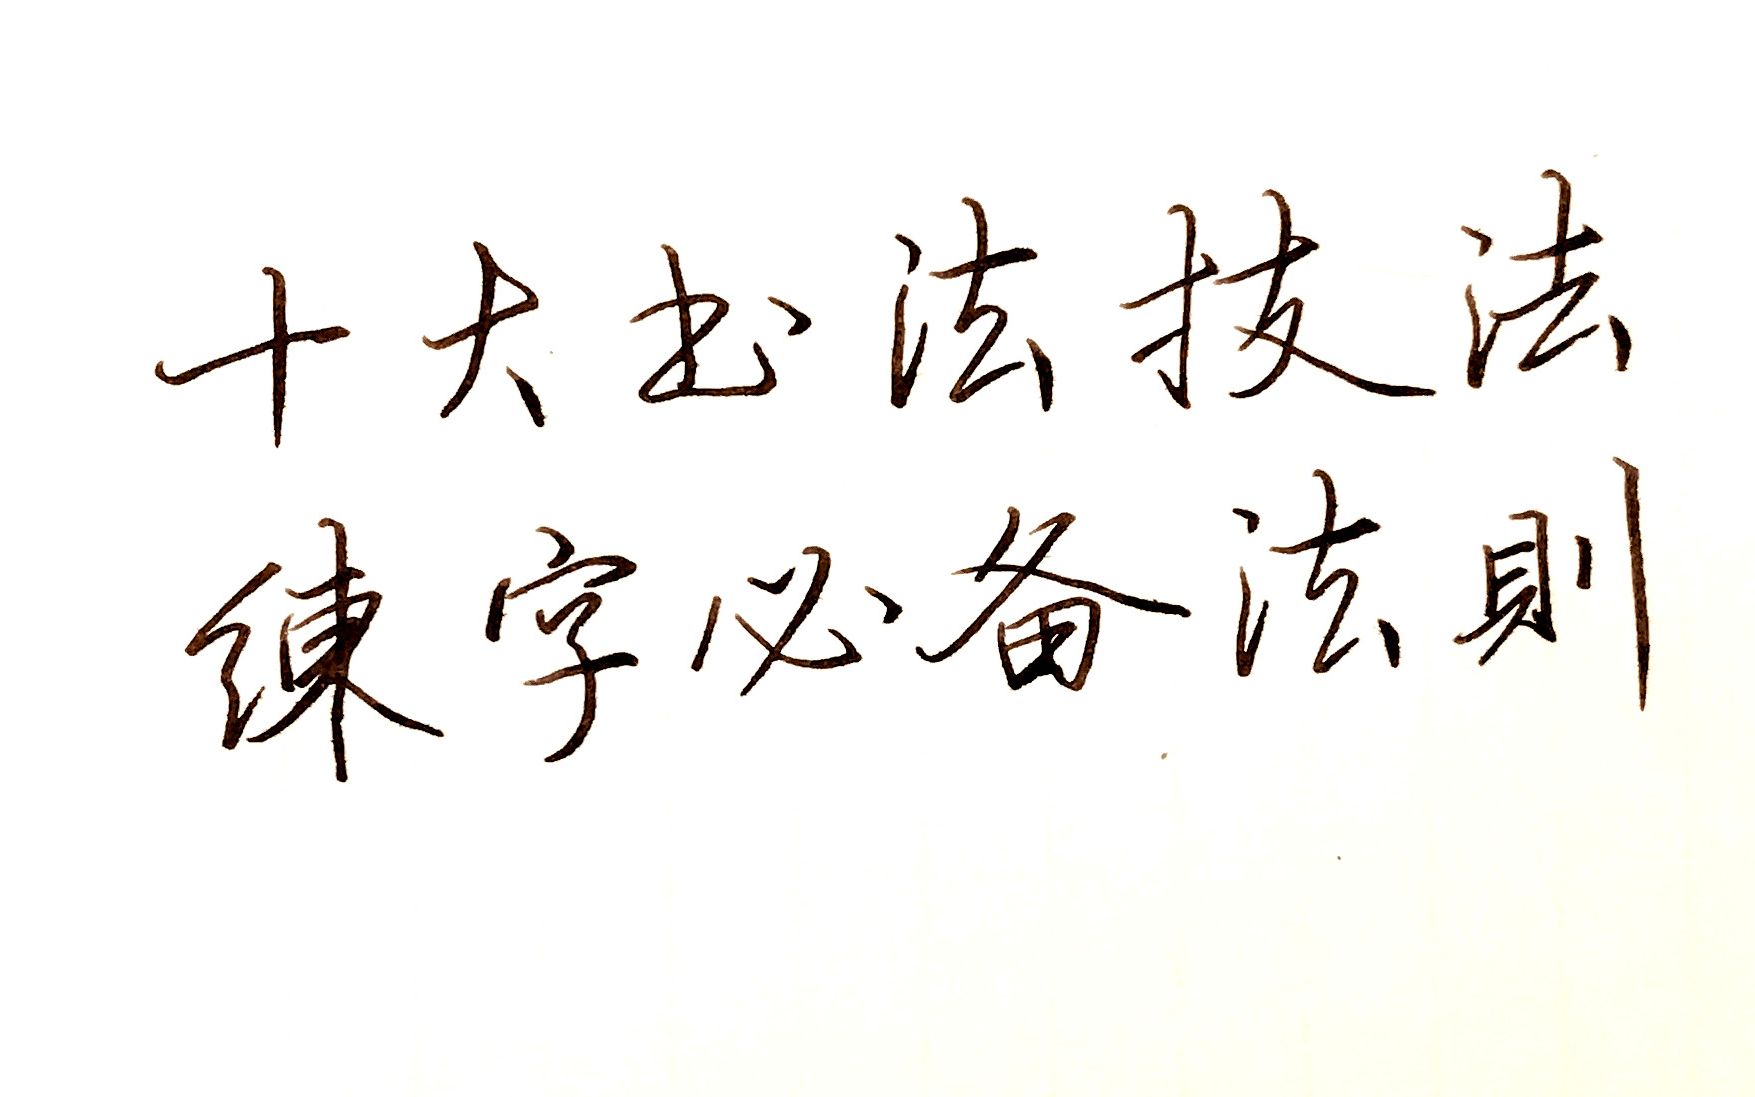 十大书法技法
練字必备法則